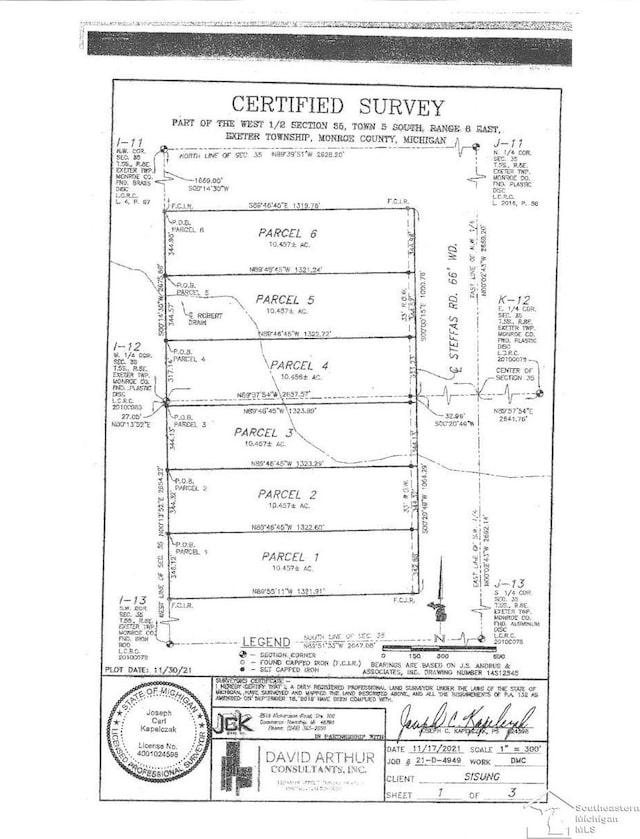 CERTIFIED SURVEY
PART OF THE WEST 1/2 SECTION 35, TOWN 5 SOUTH, RANGE 8 EAST,
EXETER TOWNSHIP, MONROE COUNTY, MICHIGAN
I-11
N.W. COR.
SEC. 35
T.5S., R.8E.
EXETER TWP.
MONROE CO.
FND. BRASS
DISC
L.C.R.C.
L. 4, P. 67
NORTH LINE OF SEC. 35 N89°39'51"W 2628.20'
J-11
N. 1/4 COR.
SEC. 35
T.5S., R.8E.
EXETER TWP.
MONROE CO.
FND. PLASTIC
DISC
L.C.R.C.
1669.00'
S00°14'30"W
F.C.I.R.
S89°46'45"E 1319.76'
F.C.I.R.
P.O.B.
PARCEL 6
344.98'
PARCEL 6
10.457± AC.
N89°46'45"W 1321.24'
P.O.B.
PARCEL 5
ROBERT
DRAIN
344.57'
PARCEL 5
10.457± AC.
N89°46'45"W 1322.72'
P.O.B.
PARCEL 4
317.14'
PARCEL 4
10.456± AC.
STEFFAS RD. 66' WD.
33' R.O.W.
EAST LINE OF N.W. 1/4
N00°02'43"W 2659.20'
K-12
E. 1/4 COR.
SEC. 35
T.5S., R.8E.
EXETER TWP.
MONROE CO.
FND. PLASTIC
DISC
L.C.R.C.
20100079
CENTER OF
SECTION 35
I-12
W. 1/4 COR.
SEC. 35
T.5S., R.8E.
EXETER TWP.
MONROE CO.
FND. PLASTIC
DISC
L.C.R.C.
20100080
27.05'
N00°13'52"E
N89°57'54"E
2641.76'
32.96'
S00°20'49"W
N89°46'45"W 1323.89'
P.O.B.
PARCEL 3
344.13'
PARCEL 3
10.457± AC.
N89°46'45"W 1323.29'
P.O.B.
PARCEL 2
344.32'
PARCEL 2
10.457± AC.
N89°46'45"W 1322.60'
P.O.B.
PARCEL 1
346.12'
PARCEL 1
10.457± AC.
N89°55'11"W 1321.91'
WEST LINE OF SEC. 35 N00°13'52"E 2654.22'
33' R.O.W.
S00°20'49"W 1064.29'
EAST LINE OF S.W. 1/4
N00°02'43"W 2692.14'
F.C.I.R.
F.C.I.R.
I-13
S.W. COR.
SEC. 35
T.5S., R.8E.
EXETER TWP.
MONROE CO.
FND. IRON
ROD
L.C.R.C.
20100079
J-13
S. 1/4 COR.
SEC. 35
T.5S., R.8E.
EXETER TWP.
MONROE CO.
FND. ALUMINUM
DISC
L.C.R.C.
20100078
SOUTH LINE OF SEC. 35
N89°51'35"W 2647.08'
N
0 150 300 600
LEGEND
- SECTION CORNER
- FOUND CAPPED IRON (F.C.I.R.)
- SET CAPPED IRON
BEARINGS ARE BASED ON J.S. ANDRUS &
ASSOCIATES, INC. DRAWING NUMBER 14S12345
PLOT DATE: 11/30/21
SURVEYORS CERTIFICATE:
I HEREBY CERTIFY THAT I, A DULY REGISTERED PROFESSIONAL LAND SURVEYOR UNDER THE LAWS OF THE STATE OF
MICHIGAN, HAVE SURVEYED AND MAPPED THE LAND DESCRIBED ABOVE, AND ALL THE REQUIREMENTS OF P.A. 132 AS
HAVE BEEN COMPLIED WITH.
STATE OF MICHIGAN
Joseph
Carl
Kapelczak
License No.
4001024598
LICENSED PROFESSIONAL SURVEYOR
JCK
IN PARTNERSHIP WITH
DAVID ARTHUR
CONSULTANTS, INC.
Joseph C. Kapelczak
JOSEPH C. KAPELCZAK, PS #24598
DATE 11/17/2021 SCALE 1" = 300'
JOB # 21-D-4949 WORK DMC
CLIENT SISUNG
SHEET 1 OF 3
Southeastern
Michigan
MLS